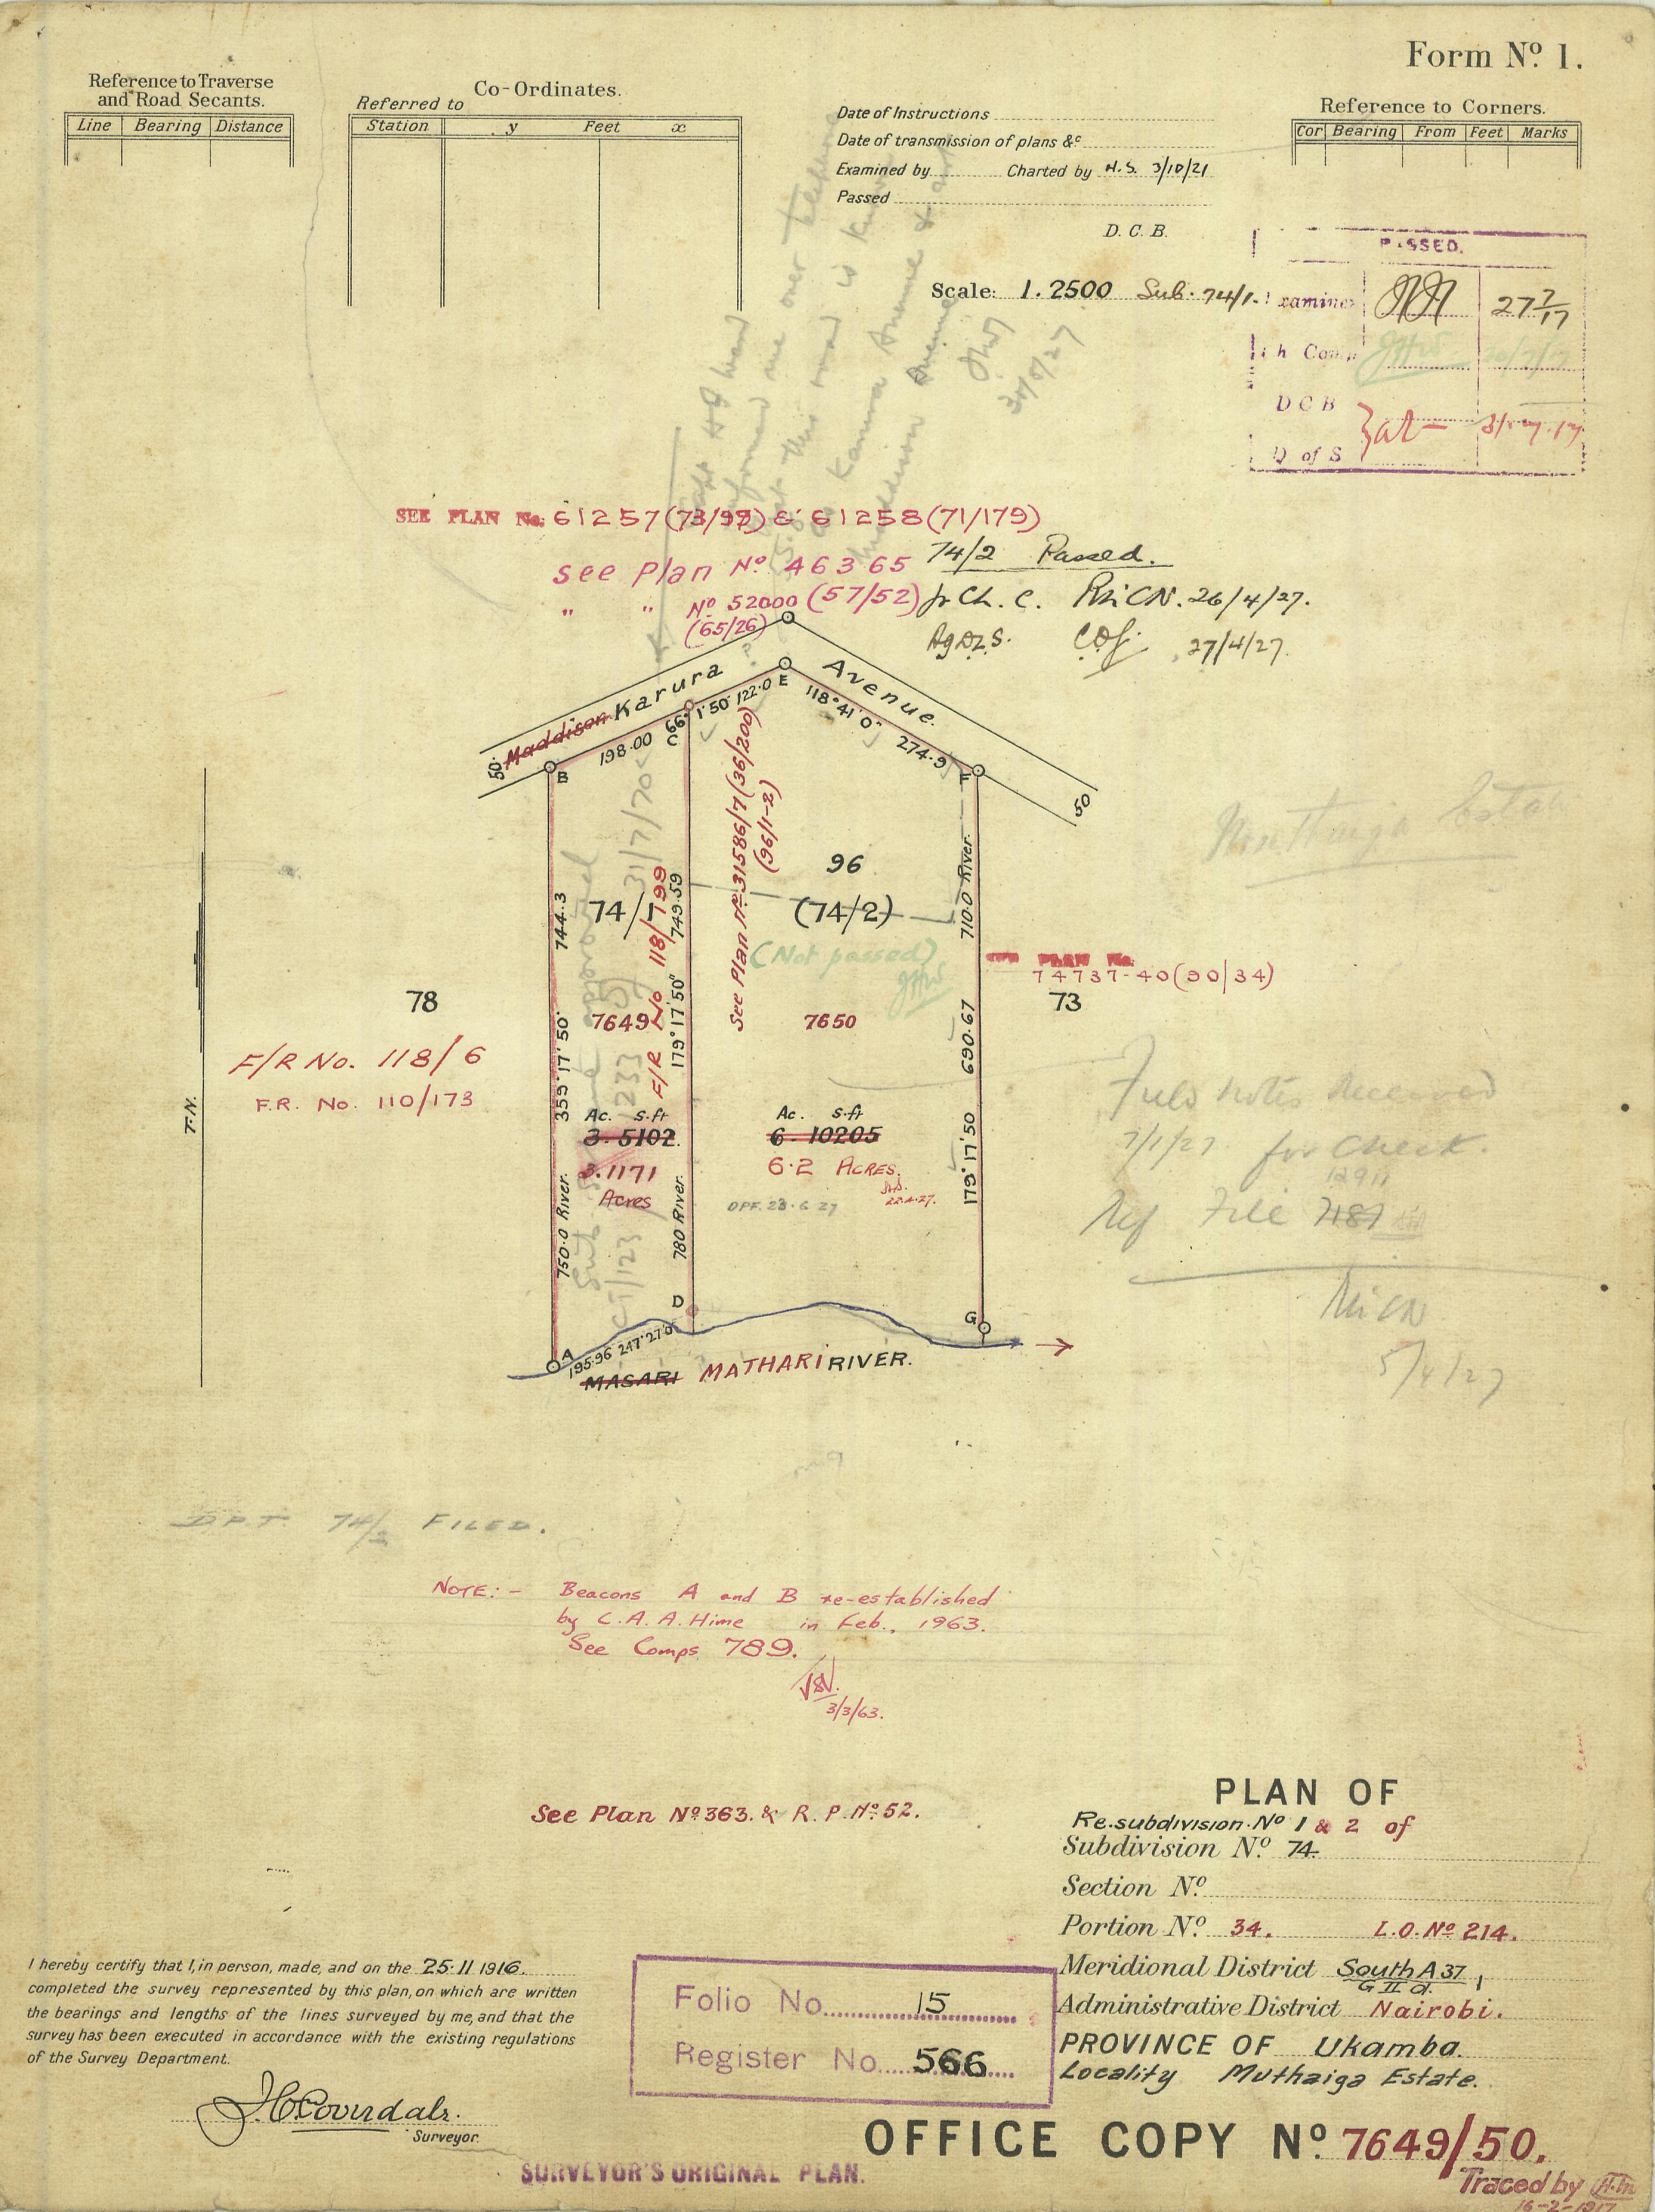 Form Nº 1.
Reference to Traverse
and Road Secants.
Line Bearing Distance
Co-Ordinates.
Referred to
Station y Feet x
Date of Instructions
Date of transmission of plans &c
Examined by Charted by H.S. 3/10/21
Passed
D. C. B.
Reference to Corners.
Cor Bearing From Feet Marks
Scale: 1.2500 Sub. 74/1.
PASSED.
27/7/17
D C B
D of S
SEE PLAN No. 61257 (73/99) & 61258 (71/179)
see Plan Nº 46365 (57/52)
" " Nº 52000
(65/26)
74/2 Passed.
26/4/27.
27/4/27.
Maddison Karura Avenue.
50.
50
B
198.00
C
66° 1' 50"
122.0
E
118° 41' 0"
274.9
F
744.3
359° 17' 50"
750.0 River.
74/1
7649
31/7/70
F/R No 118/199
749.59
179° 17' 50"
780 River.
Ac. S.ft
3. 5102.
3.1171
Acres
See Plan Nº 31586/7 (36/200)
(96/1-2)
96
(74/2)
(Not passed)
7650
Ac. S.ft
6. 10205
6.2 ACRES.
22.4.27.
710.0 River.
690.67
179° 17' 50
78
F/R No. 118/6
F.R. No. 110/173
T.N.
PLAN No.
74737-40(90/34)
73
Field notes received
7/1/27 for check.
12911
Ref File 7187
5/4/27
D
G
A
195.96 247° 27' 0"
MASARI MATHARI RIVER.
D.P.T. 74/2 FILED.
NOTE:- Beacons A and B re-established
by C.A.A. Hime in Feb., 1963.
See Comps 789.
3/3/63.
See Plan Nº 363. & R.P. Nº 52.
PLAN OF
Re.subdivision.Nº 1 & 2 of
Subdivision Nº 74.
Section Nº
Portion Nº 34. L.O. Nº 214.
Meridional District South A 37
G II d. 1
Administrative District Nairobi.
PROVINCE OF Ukamba.
Locality Muthaiga Estate.
I hereby certify that I, in person, made, and on the 25.11 1916.
completed the survey represented by this plan, on which are written
the bearings and lengths of the lines surveyed by me, and that the
survey has been executed in accordance with the existing regulations
of the Survey Department.
J.H.Coverdale.
Surveyor.
Folio No. 15
Register No. 566
OFFICE COPY Nº 7649/50.
SURVEYOR'S ORIGINAL PLAN.
Traced by H.M
16-2-1917